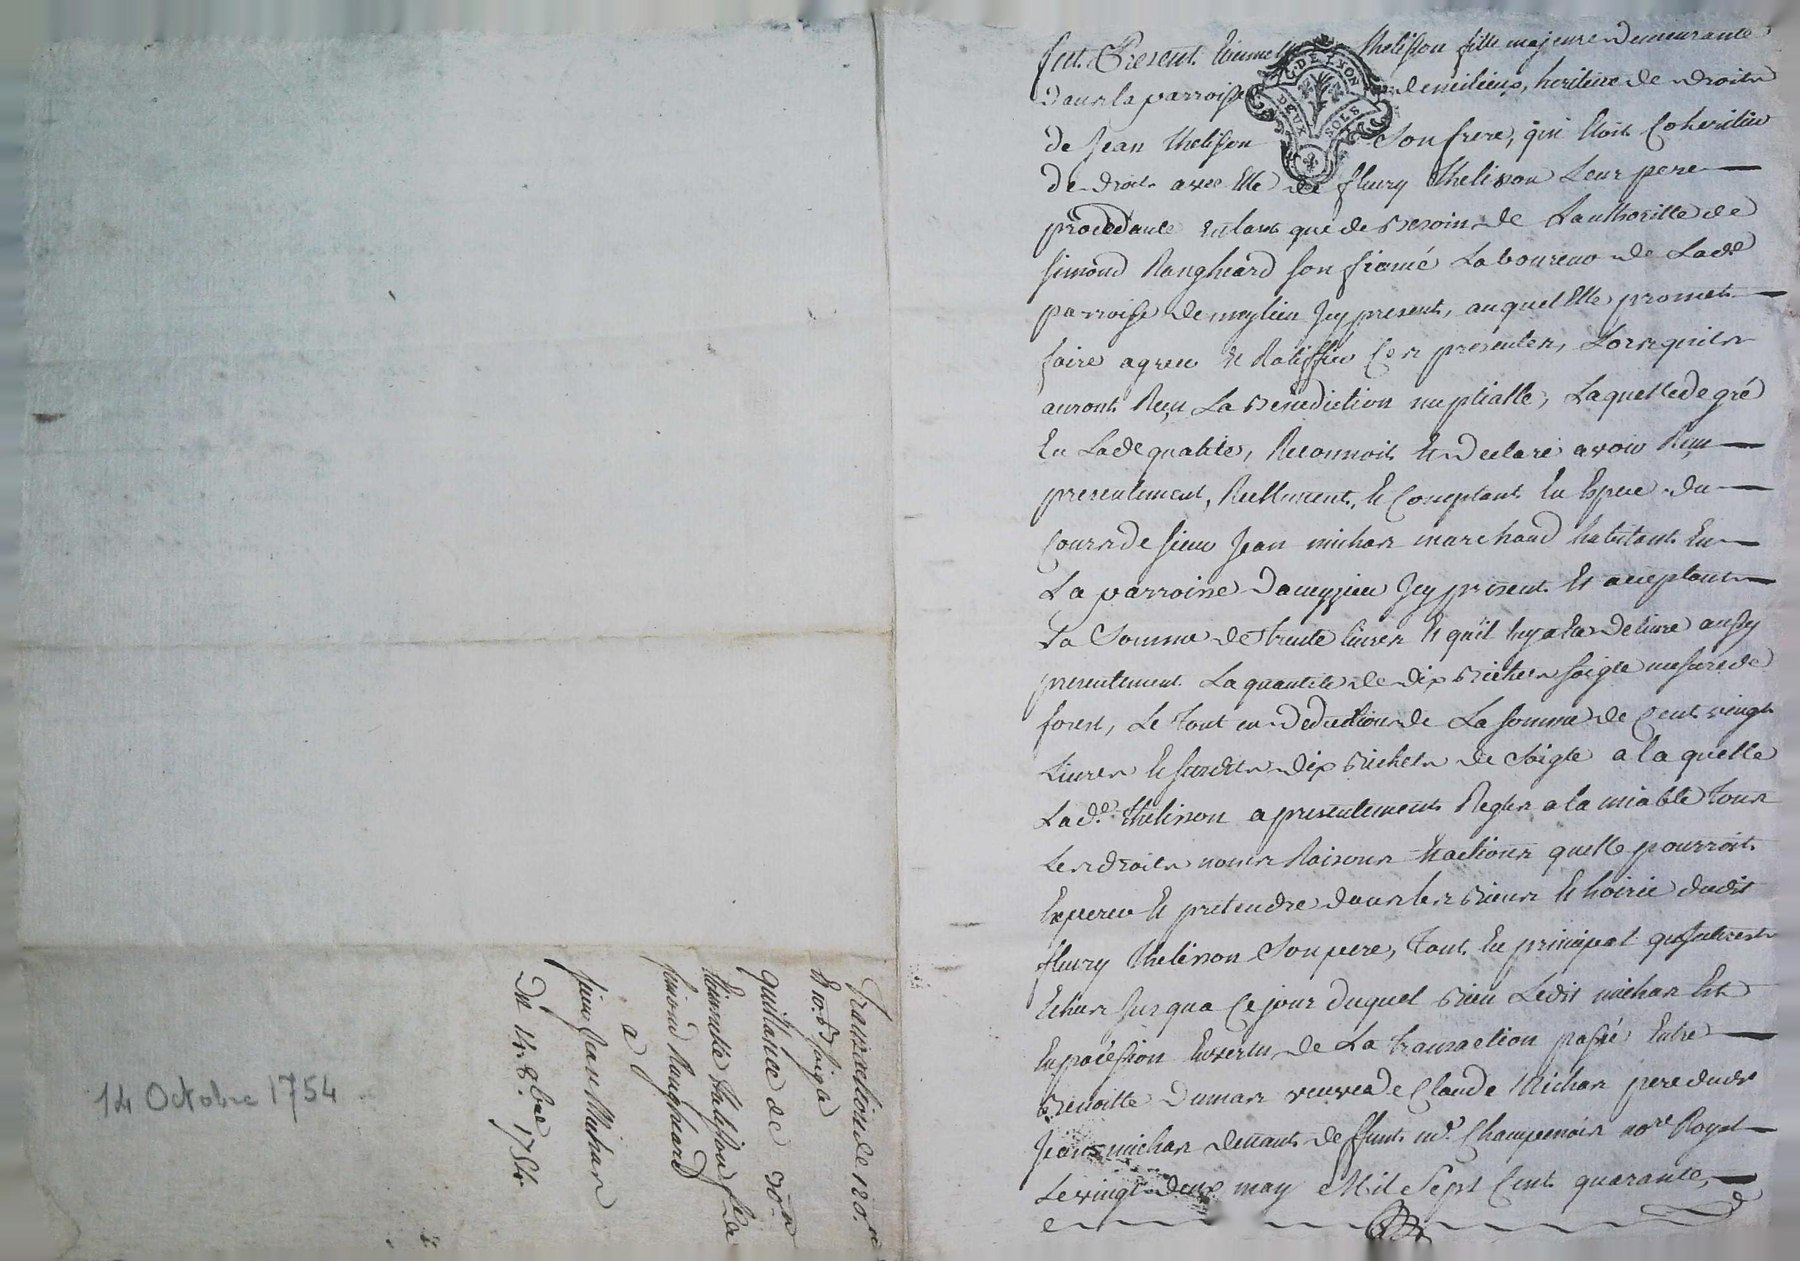 fut Present Etiennette Thelisson fille majeure Demeurante
Dans la parroisse de meilieu, heritiere de droits
de Jean thelisson Son frere, qui Etoit Coheritier
de droits avec Elle de fleury Thelisson Leur pere
procedante En tant que de Besoin de Lauthoritté de
Simond Rangheard son fiancé Laboureur de Lade
parroisse de meylieu Jcy present, auquel Elle promet
faire agreer Et Ratiffier Ces presentes, Lorsquils
auront Reçu La Benediction nuptialle, Laquelle de gré
En Lade qualité, Reconnoit Et Declare avoir Reçu
presentement, Reellement, Et Comptant En Espece du
Cours de sieur Jean michas marchand habitant En
La parroisse Daveyzieu Jcy present Et acceptant
La Somme de trente Livres Et quil luy a Eté Delivré aussy
presentement La quantité de Dix Bichets soigle mesure de
forest, Le Tout en Deduction de La somme de Cent vingt
Livres Et susdits Dix Bichets de Soigle a la quelle
Lade. thelisson a presentement Reglés a la miable Tous
Les droits noms Raisons Et actions quelle pourroit
Exercer Et pretendre dans les Biens Et hoirie dudit
fleury Thelisson Son pere, Tant En principal qu'interests
Echus Jusqua Ce jour Duquel Bien Ledit michas Est
En possession En vertu de La transaction passé Entre
Benoitte Dumas veuve de Claude Michas pere dudt
Jean michas devant deffunt me. Champenois nore Royal
Le vingt deux may Mil Sept Cent quarante,
Transaction de 120. #
& 10. B. soigle
quittance de 30. #
Etiennette Thelisson fde
simond Rangheard
a
sieur Jean Michas
Du 14. 8bre 1754.
14 Octobre 1754
G. DE LYON
DEUX SOLS